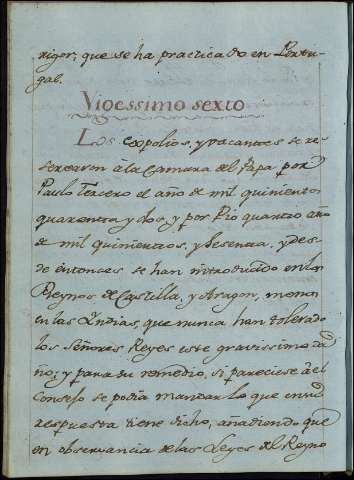 rigor; que se ha practicado en Portu-
gal.
Vigessimo sexto
Los expolios, y vacantes se re-
servaron à la Camara del Papa por
Paulo Tercero el año de mil quinientos
quarenta y dos, y por Pio quarto año
de mil quinientos, y sesenta, y des-
de entonces se han introducido en los
Reynos, de Castilla, y Aragon, menos
en las Indias, que nunca han tolerado
los Señores Reyes este gravissimo da-
ño; y para su remedio, si pareciese àel
Consejo se podia mandar lo que en su
respuesta tiene dicho, añadiendo que
en observancia de las Leyes del Reyno